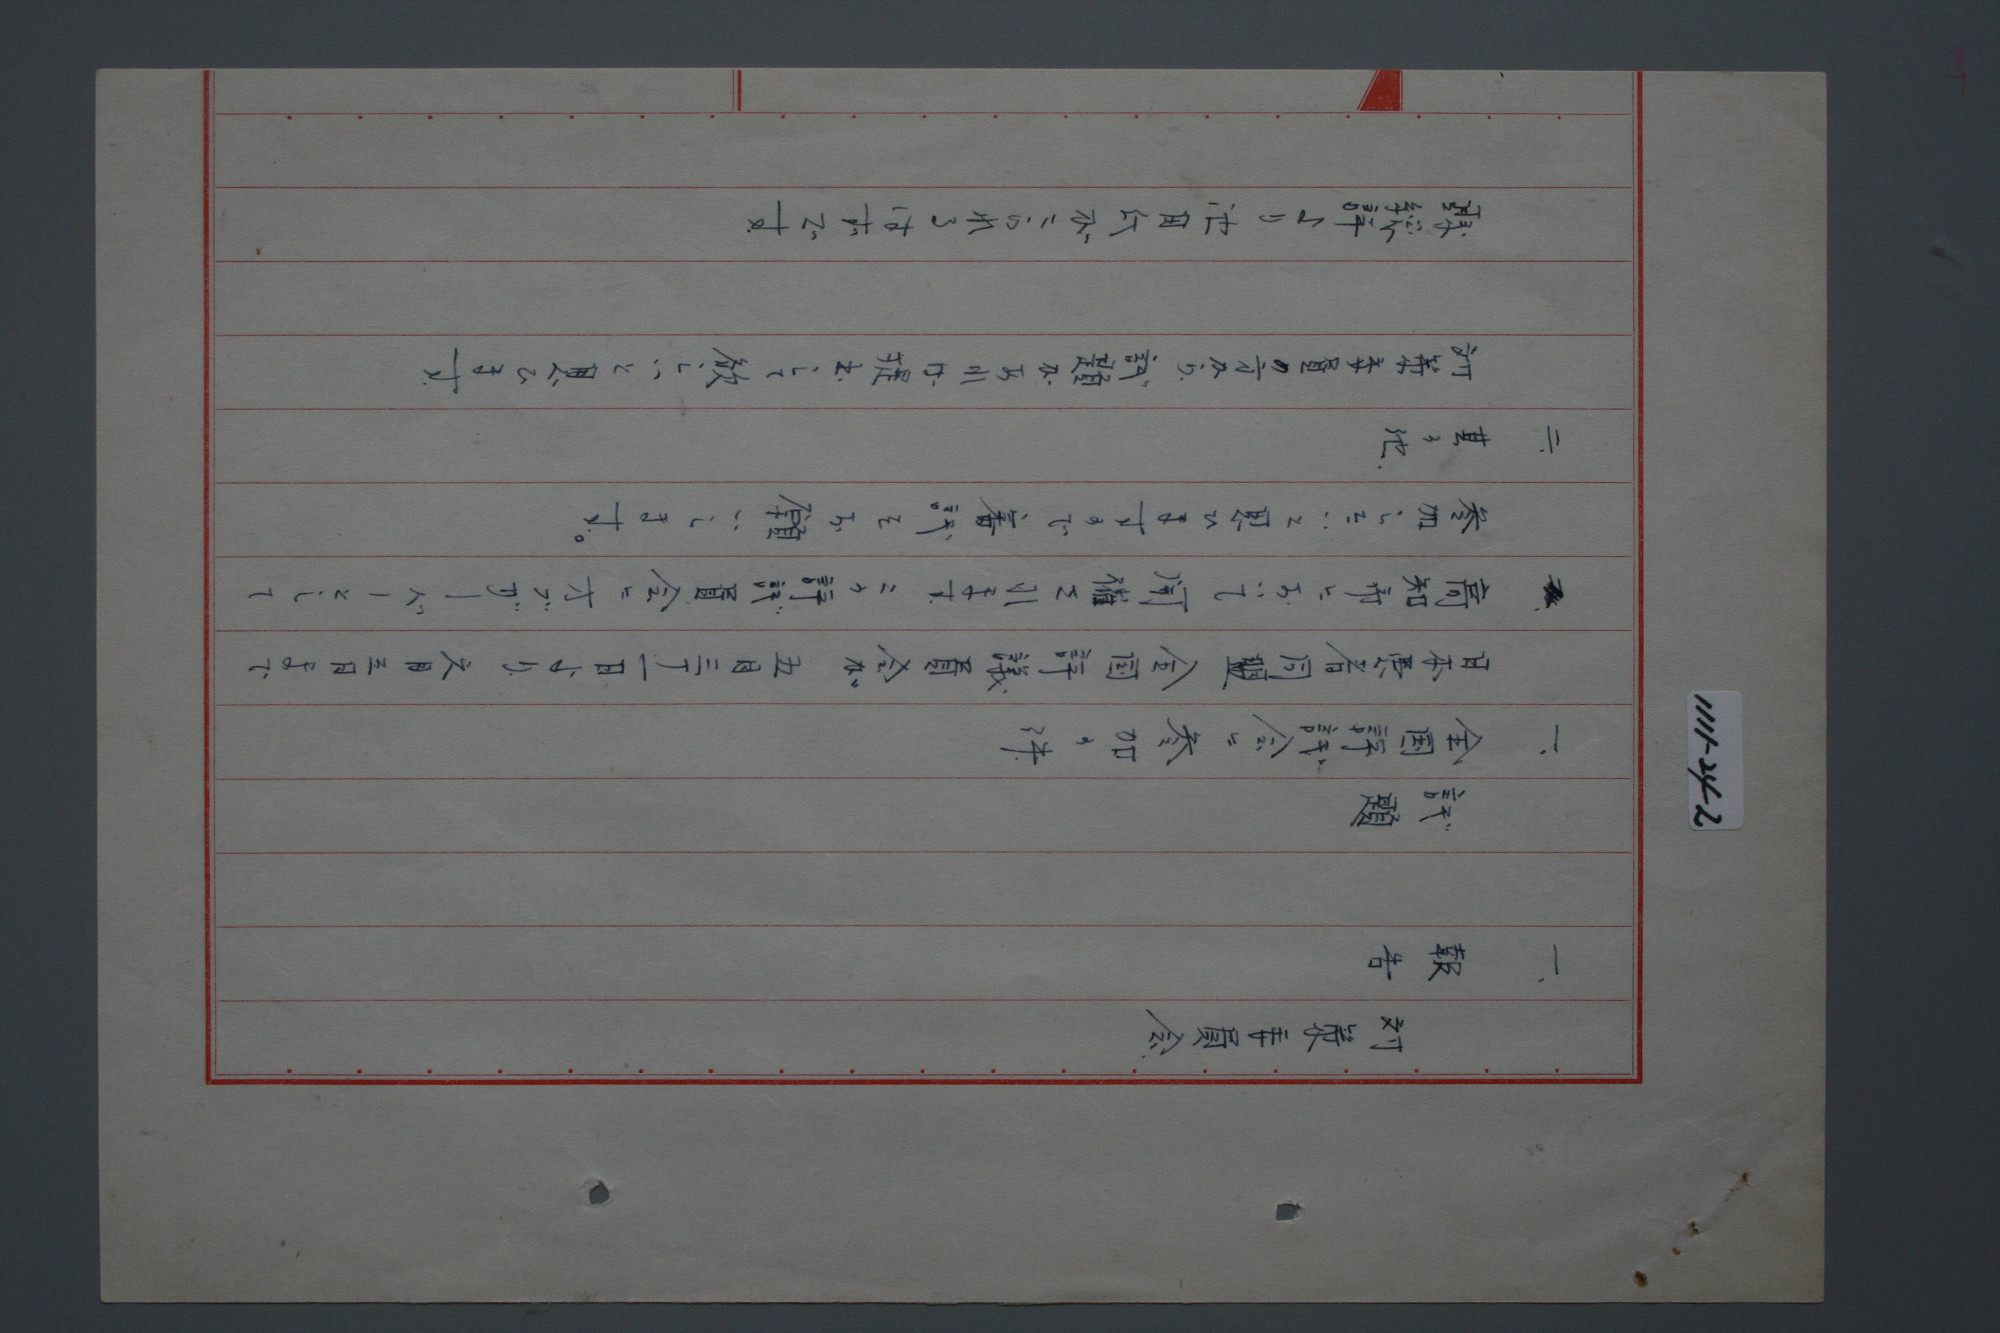 対策委員会
一、報告
議題
一、全国評議会に参加の件
日本患者同盟全国評議員会が五月三十一日より六月三日まで
高知市において開催されます この評議員会にオブザーバーとして
参加したいと思いますので審議をお願いします。
二、其の他
対策委員の方から議題があれば提出して欲しいと思います
総評よりがこられるはずです
1111-24-2